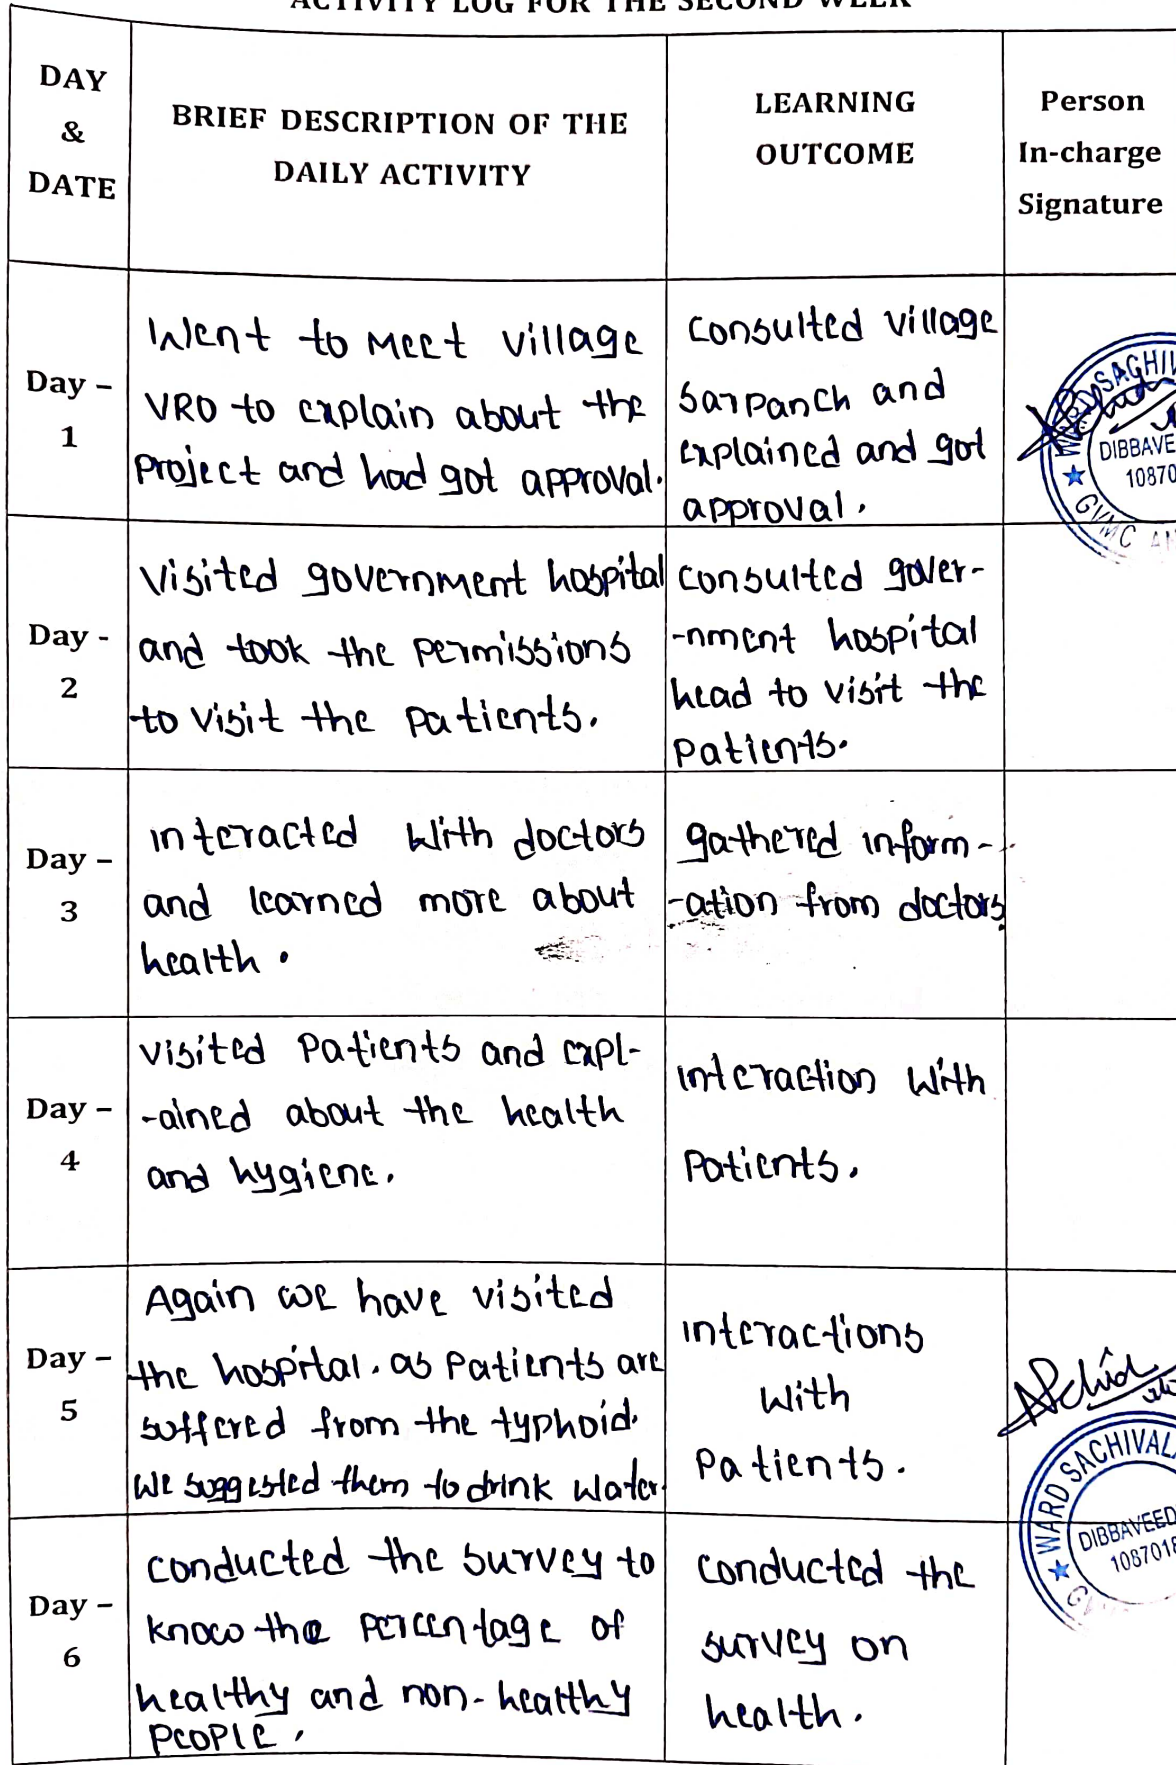 ACTIVITY LOG FOR THE SECOND WEEK
DAY
&
DATE
BRIEF DESCRIPTION OF THE
DAILY ACTIVITY
LEARNING
OUTCOME
Person
In-charge
Signature
Day –
1
Went to Meet village
VRO to explain about the
project and had got approval.
consulted village
Sarpanch and
explained and got
approval.
WARD SAGHIV
DIBBAVE
1087０
GVMC AN
Day -
2
Visited government hospital
and took the permissions
to visit the patients.
consulted gover-
-nment hospital
head to visit the
patients.
Day –
3
interacted with doctors
and learned more about
health.
gathered inform-
-ation from doctors.
Day –
4
visited patients and expl-
-ained about the health
and hygiene.
interaction with
patients.
Day –
5
Again we have visited
the hospital. as patients are
suffered from the typhoid.
We suggested them to drink water.
interactions
with
patients.
WARD SACHIVAL
DIBBAVEED
108701
Day –
6
conducted the survey to
know the percentage of
healthy and non-healthy
people.
conducted the
survey on
health.